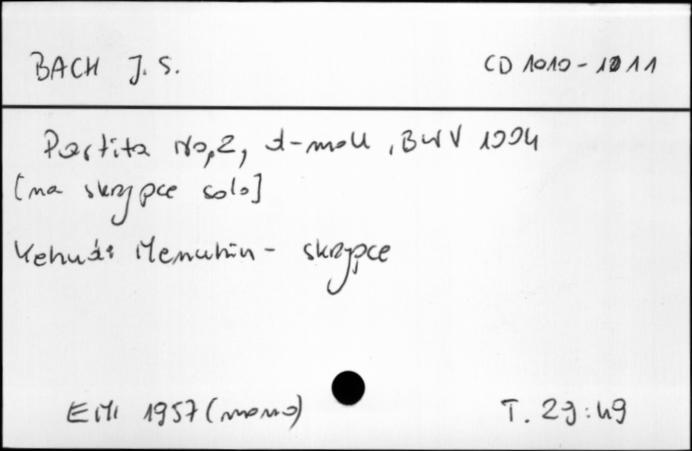 BACH J. S. CD 1010-1011
Partita No, 2, d-moll, BWV 1004
[na skrzypce solo]
Yehudi Menuhin - skrzypce
EMI 1957 (mono) T. 29:49